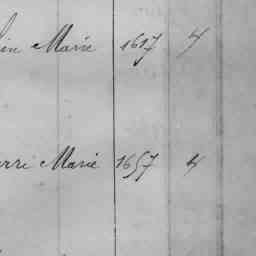 lin Marie 1617 4
erre Marie 1657 4